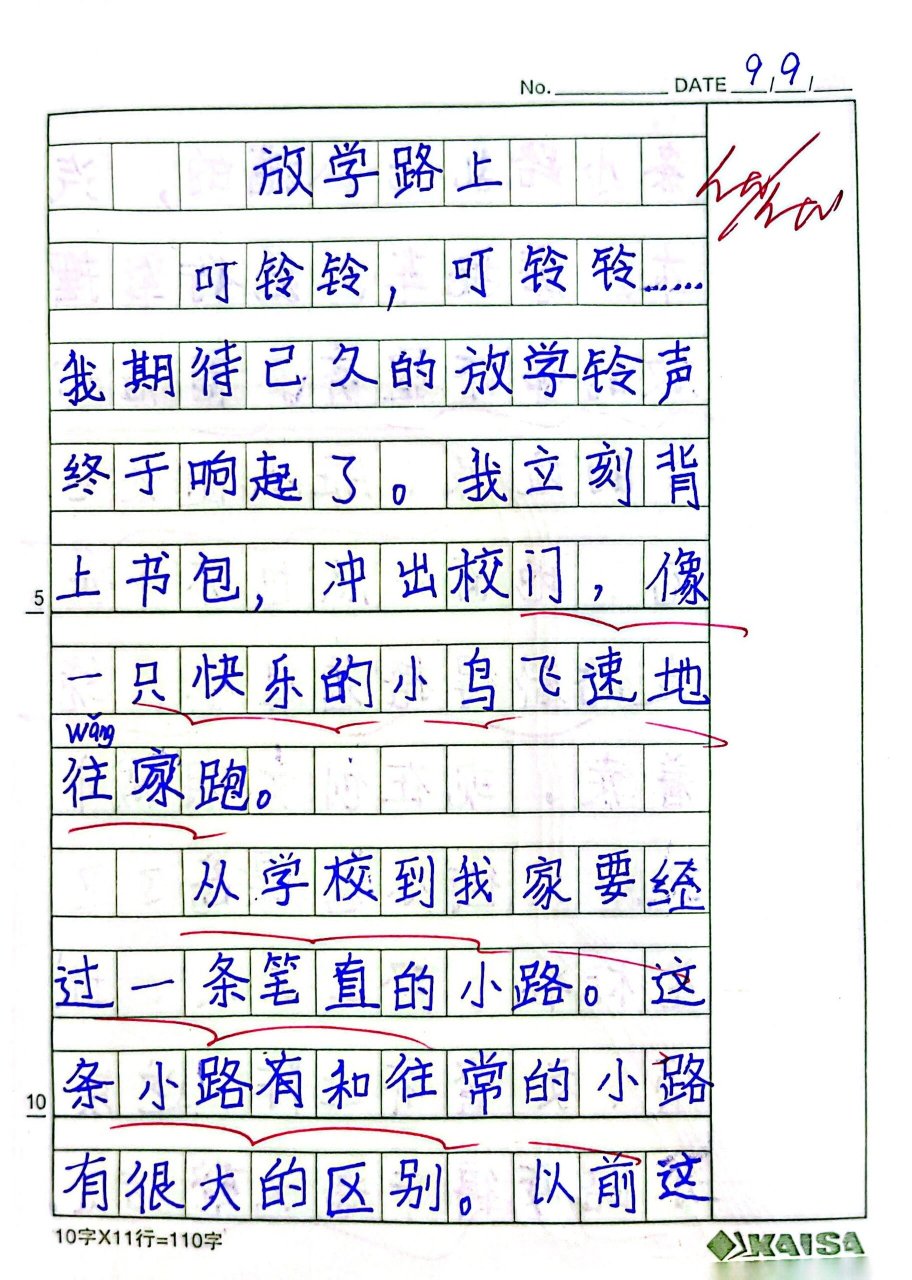 No. DATE 9/9/
放学路上
叮铃铃，叮铃铃……
我期待已久的放学铃声
终于响起了。我立刻背
上书包，冲出校门，像
5
一只快乐的小鸟飞速地
wǎng
往家跑。
从学校到我家要经
过一条笔直的小路。这
条小路有和往常的小路
10
有很大的区别。以前这
10字X11行=110字
KAISA